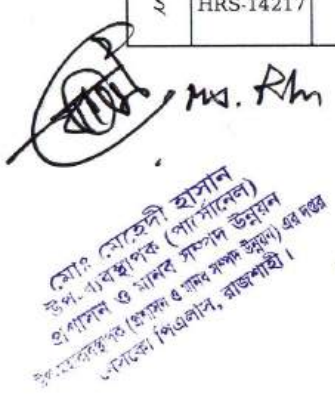 HRS-14217
মোঃ মেহেদী হাসান
উপ-ব্যবস্থাপক (পার্সোনেল)
প্রশাসন ও মানব সম্পদ উন্নয়ন
উপ-মহাব্যবস্থাপক (প্রশাসন ও মানব সম্পদ উন্নয়ন) এর দপ্তর
নেসকো পিএলসি, রাজশাহী।